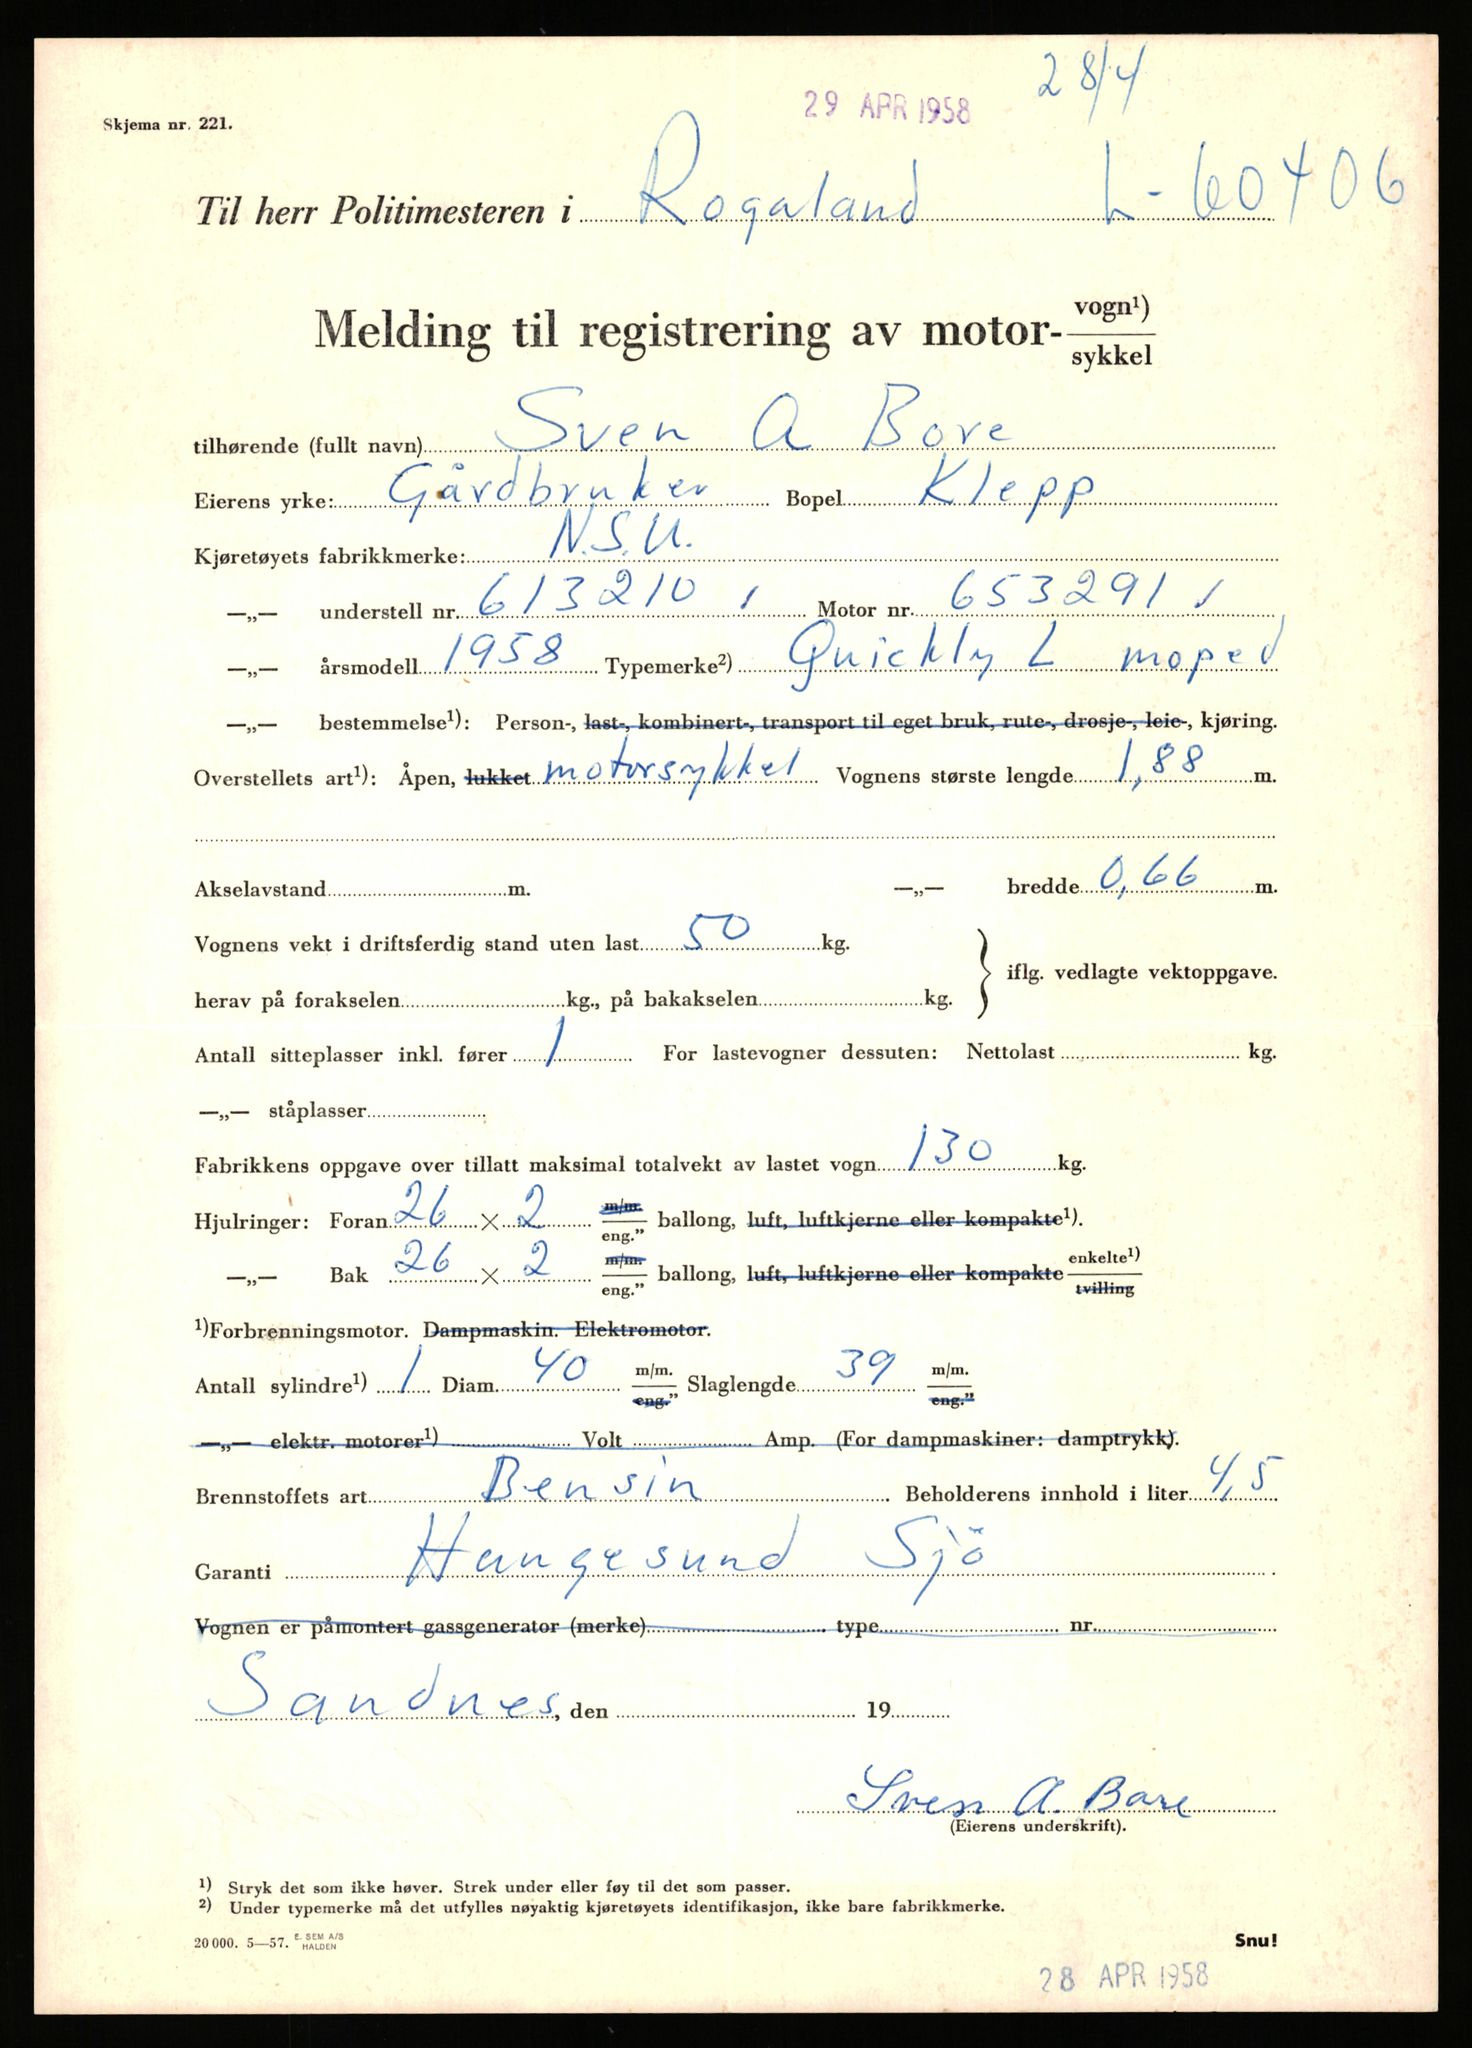 28/4
29 APR 1958
Skjema nr. 221.
Til herr Politimesteren i Rogaland L-60406
Melding til registrering av motor- vogn¹) sykkel
tilhørende (fullt navn) Sven A Bore
Eierens yrke: Gårdbruker Bopel Klepp
Kjøretøyets fabrikkmerke: N.S.U.
—„— understell nr. 613210 Motor nr. 653291
—„— årsmodell 1958 Typemerke²) Quickly L moped
—„— bestemmelse¹): Person-, last-, kombinert-, transport til eget bruk, rute-, drosje-, leie-, kjøring.
Overstellets art¹): Åpen, lukket motorsykkel Vognens største lengde 1,88 m.
Akselavstand m. —„— bredde 0,66 m.
Vognens vekt i driftsferdig stand uten last 50 kg.
iflg. vedlagte vektoppgave.
herav på forakselen kg., på bakakselen kg.
Antall sitteplasser inkl. fører 1 For lastevogner dessuten: Nettolast kg.
—„— ståplasser
Fabrikkens oppgave over tillatt maksimal totalvekt av lastet vogn 130 kg.
Hjulringer: Foran 26 × 2 m/m. eng.” ballong, luft, luftkjerne eller kompakte¹).
—„— Bak 26 × 2 m/m. eng.” ballong, luft, luftkjerne eller kompakte enkelte¹) tvilling
¹)Forbrenningsmotor. Dampmaskin. Elektromotor.
Antall sylindre¹) 1 Diam. 40 m/m. eng.” Slaglengde 39 m/m. eng.”
—„— elektr. motorer¹) Volt Amp. (For dampmaskiner: damptrykk).
Brennstoffets art Bensin Beholderens innhold i liter 4,5
Garanti Haugesund Sjö
Vognen er påmontert gassgenerator (merke) type nr.
Sandnes, den 19
Sven A. Bore
(Eierens underskrift).
¹) Stryk det som ikke høver. Strek under eller føy til det som passer.
²) Under typemerke må det utfylles nøyaktig kjøretøyets identifikasjon, ikke bare fabrikkmerke.
20 000. 5—57. E. SEM A/S HALDEN
Snu!
28 APR 1958